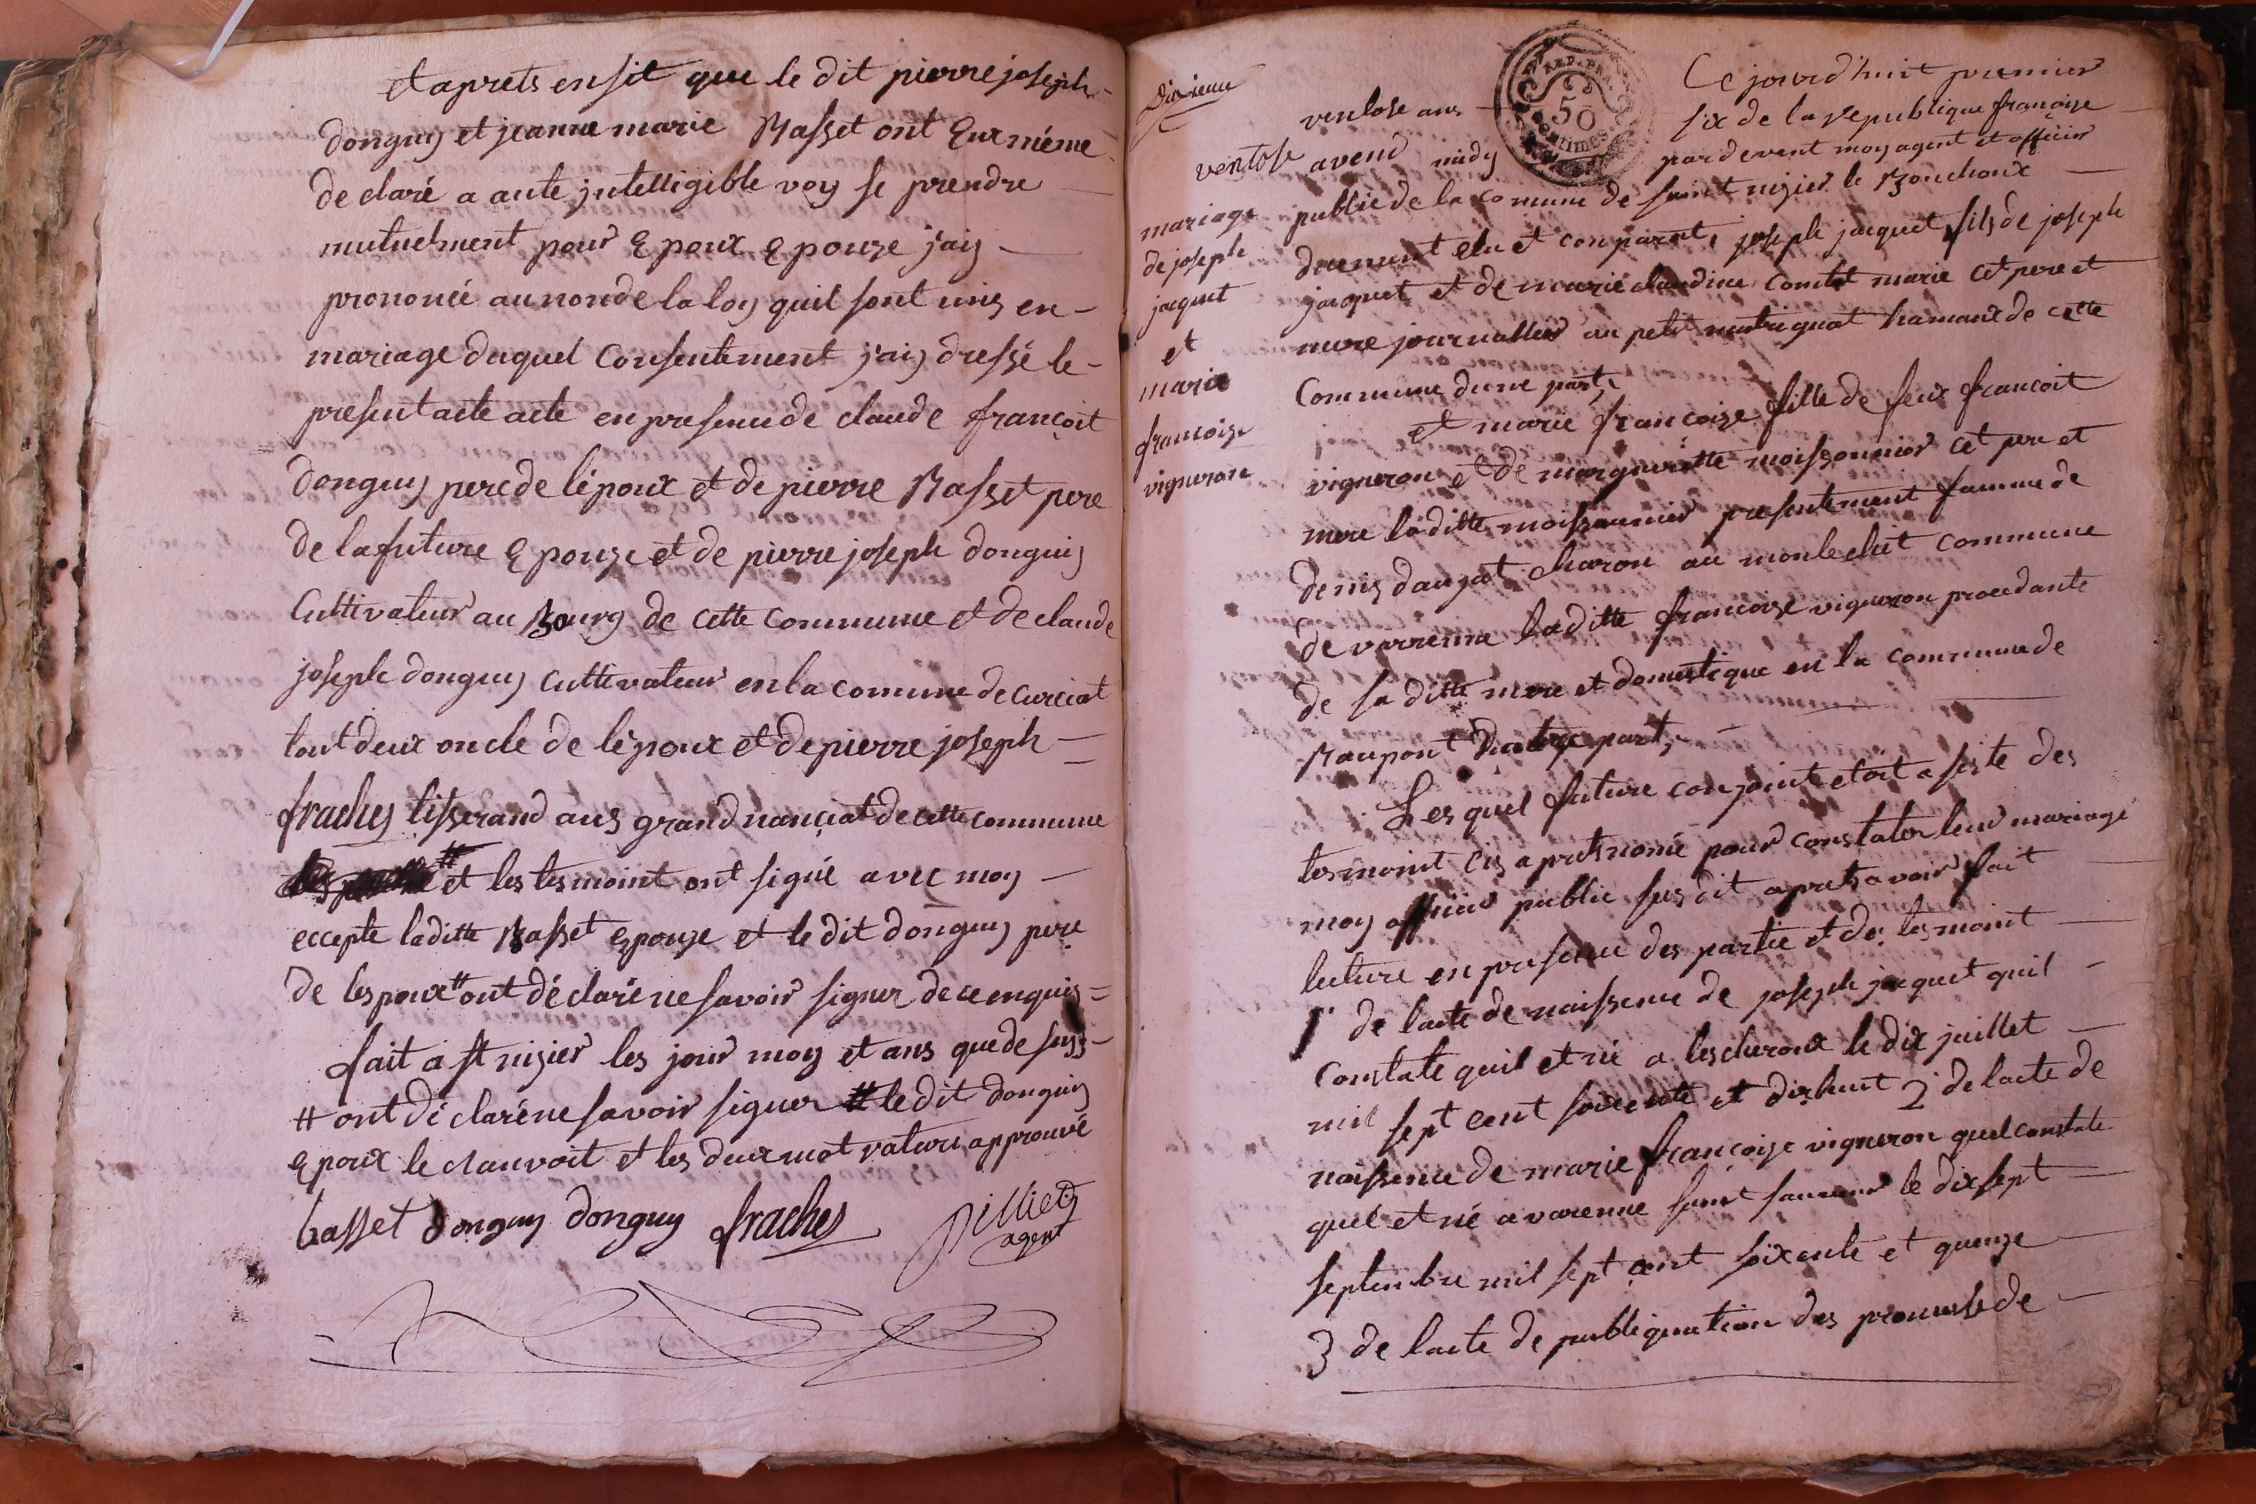 et aprets ensit que le dit pierre joseph
donguy et jeanne marie Basset ont Eux méme
de claré a aute jntelligible voy se prendre
mutuelment pour Epoux Epouze j'aiy
prononcé au non de la loy quil sont unis en
mariage duquel Consentement j'aiy dressé le
present acte acte en presence de claude françoit
donguy pere de l'époux et de pierre Basset pere
de la future Epouze et de pierre joseph donguiy
Cultivateur au Bourg de cette commune et de claude
joseph donguy cultivateur en la comune de curciat
tout deux oncle de l'époux et de pierre joseph
frachey tisserand aus grand nanciat de cette commune
et les tesmoint ont signé avec moy
eccepte laditte Basset epouze et le dit donguy pere
de les poux # ont déclaré ne savoir signer de ce enquis
fait a st nizier les jour moy et ans que de suss
# ont dé claré ne savoir signer # le dit donguiy
époux le ranvoit et les deux mot rature approuvé
basset donguy donguy frachey pilliet
agent
Dixieme
ventose
mariage
de joseph
jacquet
et
marie
francoize
vigneron
REP. FRA.
50
centimes
Ce jourd'huit premier
ventose ans six de la republique françoize
avend midy par devent moy agent et officier
public de la comune de saint nizier le Bouchoux
duement elu et conparant, joseph jacquet fils de joseph
jacquet et de marie claudine comtet marie cet pere et
mere journallier au petit hamaux de cette
Commune dune part,
et marie françoize fille de feux francoit
vigneron et de margueritte moissonnier cet pere et
mere laditte moissonnier presentement famme de
denis dauget charon au commune
de varrenne laditte francoize vigneron procedante
de sa ditte mere et domestique en la commune de
Beaupont dautre part,
Les quel future conjoint etoit asisté des
tesmoint cis apret nomé pour constater leur mariage
moy officier public susdit apret avoir fait
lecture en presence des partie et des tesmoint
1 de lacte de naissence de joseph jacquet quil
Constate quil et né a lescheroux le dix juillet
mil sept cent soixcente et dixhuit 2 de lacte de
naissence de marie françoize vigneron quel constate
quel et né a varenne saint sauveur le dixsept
septembre mil sept cent soixcente et quenze
3 de lacte de publiquation des promesse de